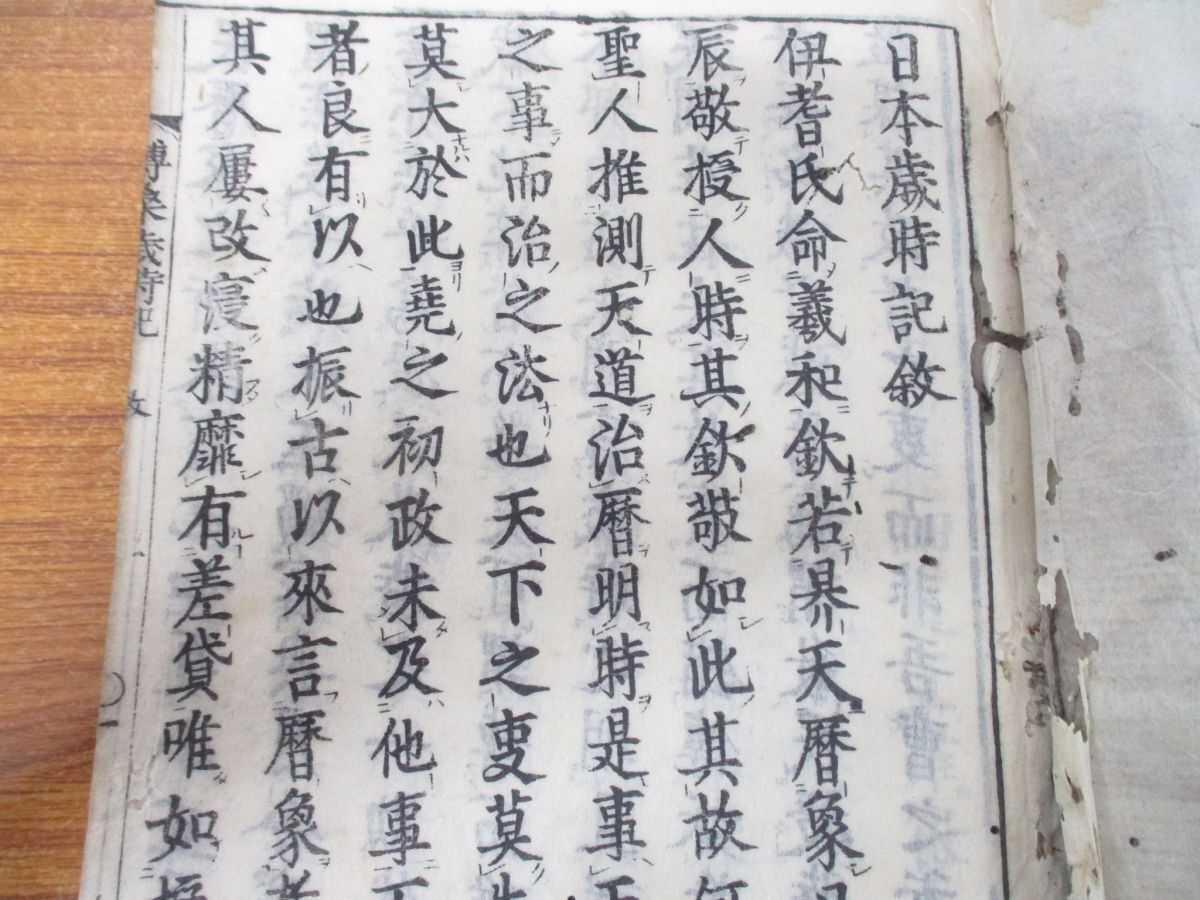 日本歳時記敘
伊耆氏命羲和欽若昦天暦象
辰敬授人時其欽敬如此其故何
聖人推測天道治暦明時是事
之事而治之法也天下之叓莫
莫大於此堯之初政未及他事
者良有以也振古以來言暦象者
其人屢改寖精靡有差貸唯如
歳時記